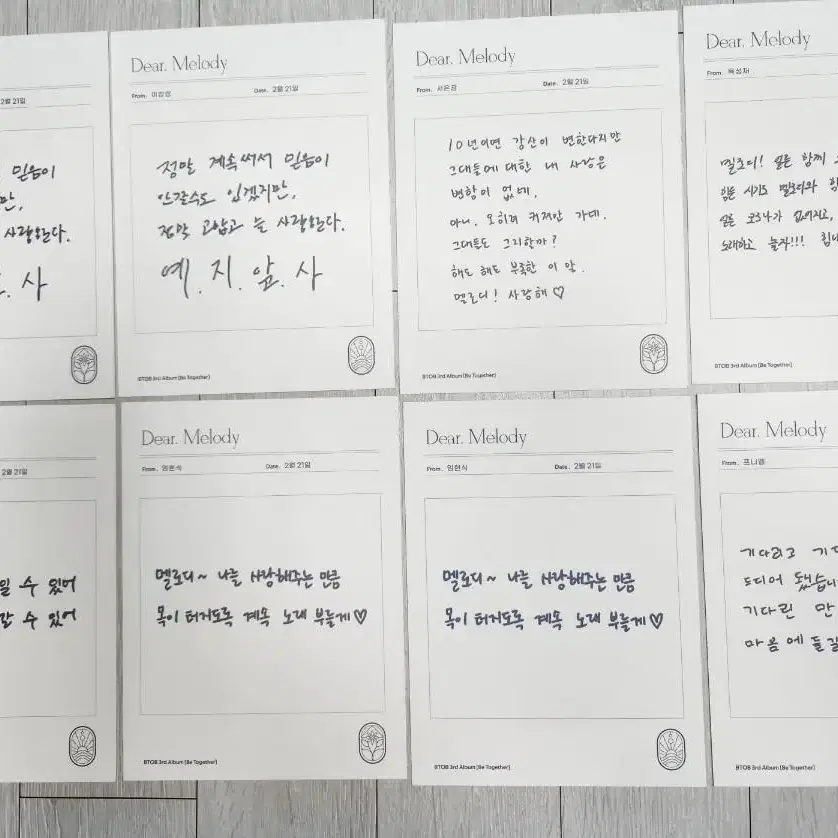 2월 21일
믿음이
만,
사랑한다.
사
Dear. Melody
From. 이창섭 Date. 2월 21일
정말 계속써서 믿음이
안갈수도 있겠지만,
정말 고맙고 늘 사랑한다.
예.지.앞.사
BTOB 3rd Album [Be Together]
Dear. Melody
From. 서은광 Date. 2월 21일
10년이면 강산이 변한다지만
그대들에 대한 내 사랑은
변함이 없네.
아니. 오히려 커져만 가네.
그대들도 그러할까?
해도 해도 부족한 이 말.
멜로디! 사랑해♡
BTOB 3rd Album [Be Together]
Dear. Melody
From. 육성재
멜로디! 함께
힘든 시기도 멜로디와
얼른 코로나가 없어지고,
노래하고 놀자!!!
BTOB 3rd Album [Be Together]
2월 21일
수 있어
갈 수 있어
Dear. Melody
From. 임현식 Date. 2월 21일
멜로디~ 나를 사랑해주는 만큼
목이 터져도록 계속 노래 부를게♡
BTOB 3rd Album [Be Together]
Dear. Melody
From. 임현식 Date. 2월 21일
멜로디~ 나를 사랑해주는 만큼
목이 터져도록 계속 노래 부를게♡
BTOB 3rd Album [Be Together]
Dear. Melody
From. 프니엘
기다리고
드디어
기다린 만
마음에 들길
BTOB 3rd Album [Be Together]